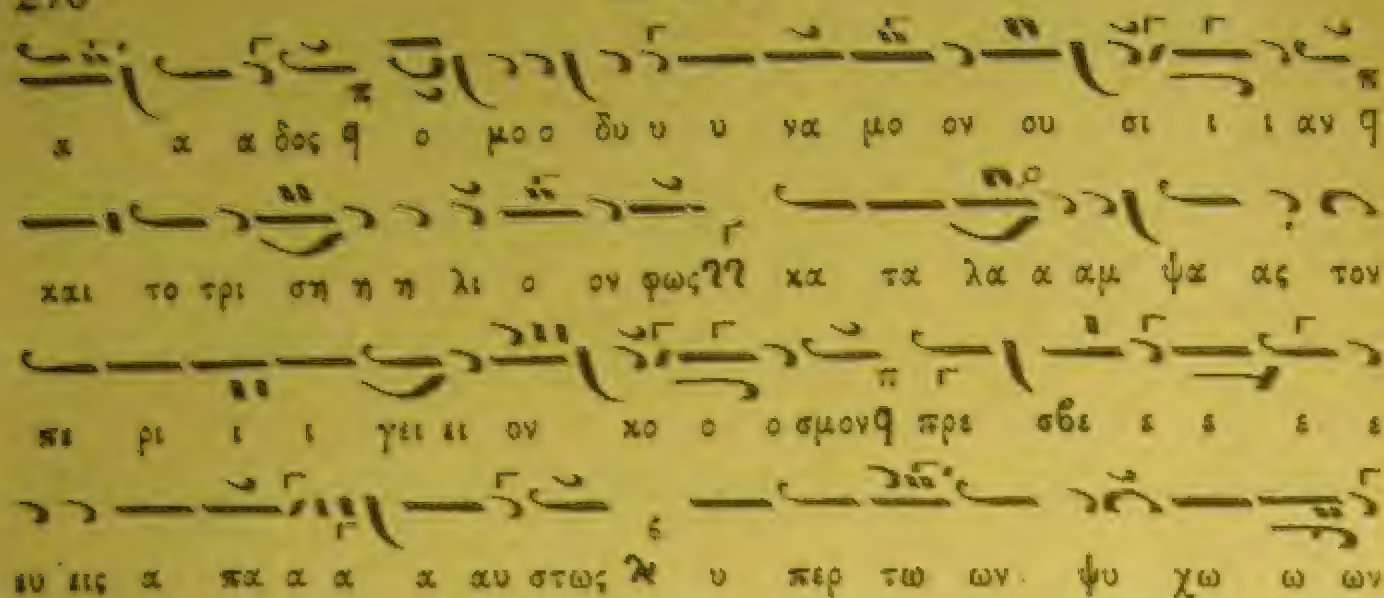 α α α δος ο μο ο δυ υ υ να μο ον ου σι ι ι αν
και το τρι ση η η λι ο ον φως κα τα λα α αμ ψα ας τον
πε ρι ι ι γει ει ον κο ο ο σμον πρε σβε ε ε ε ε
ευ εις α πα α α α αυ στως υ περ τω ων ψυ χω ω ων